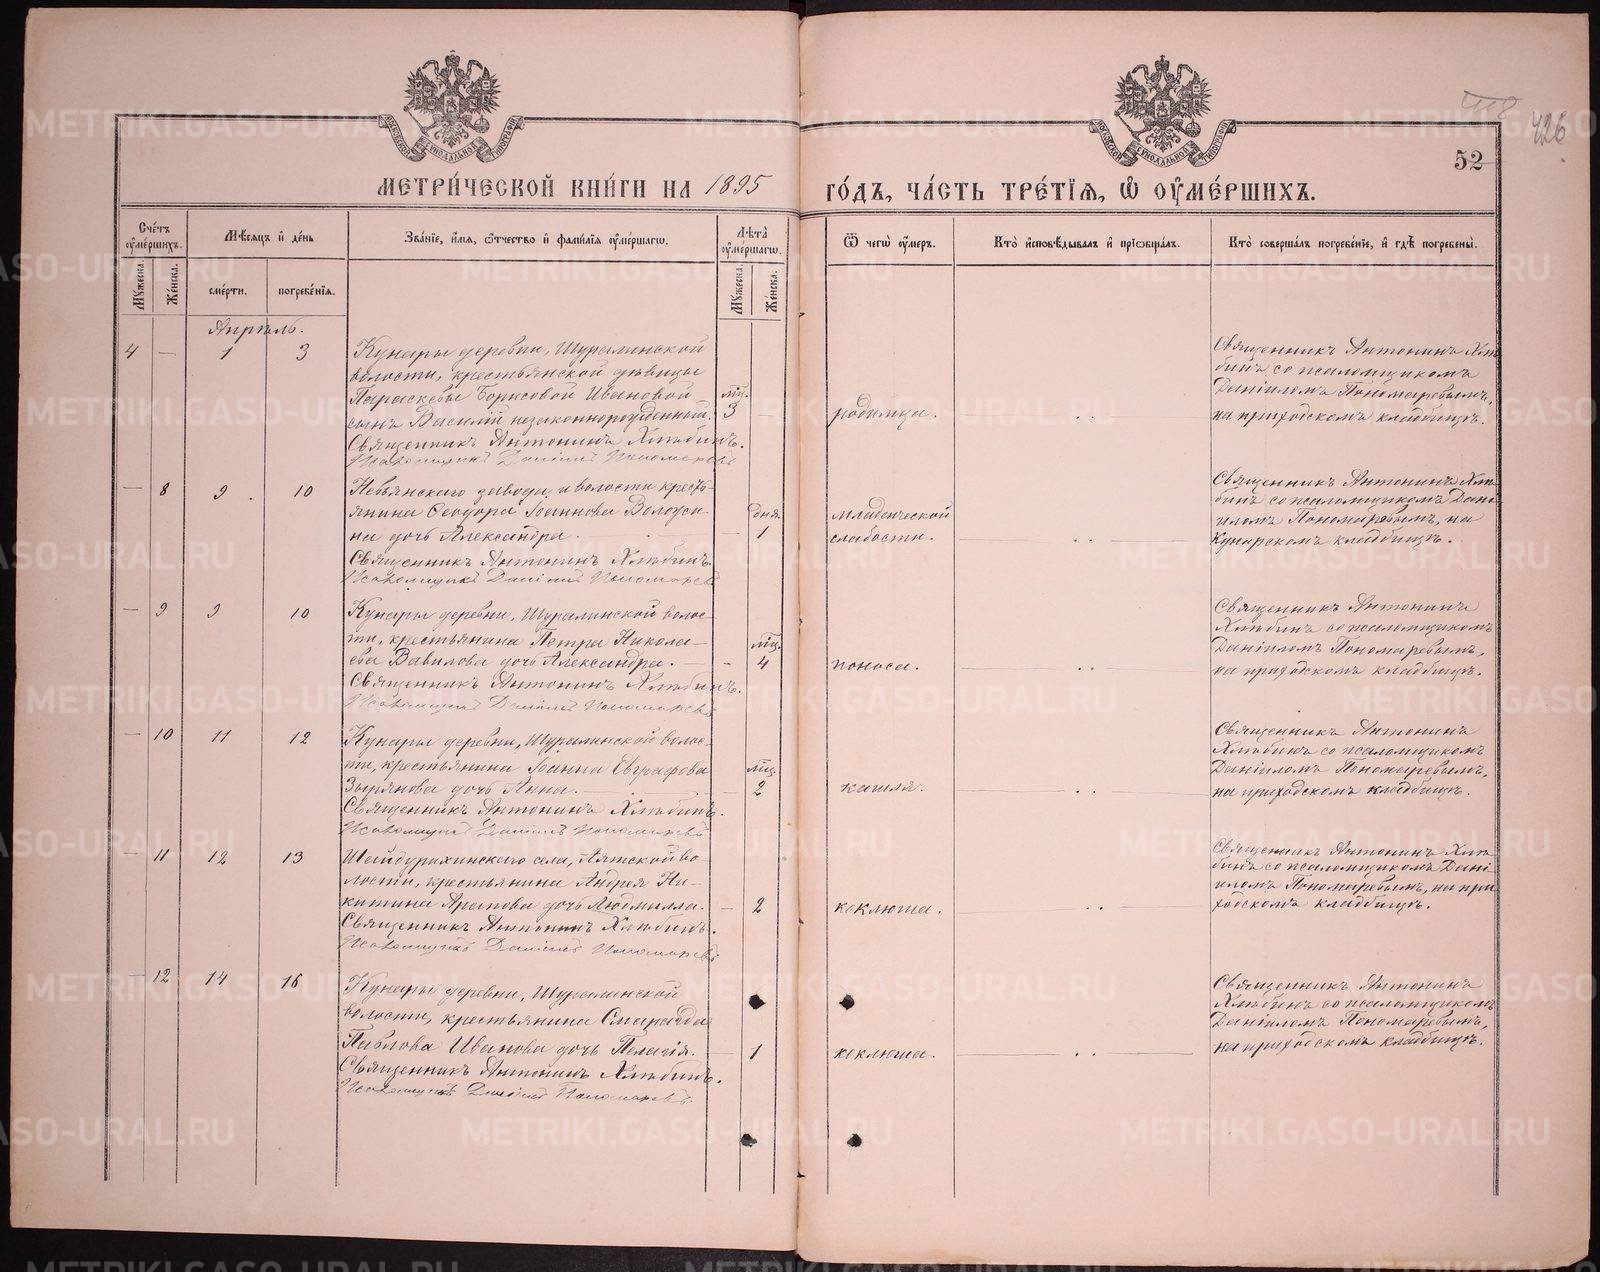 МЕТРИ́ЧЕСКОЙ КНИ́ГИ НА 1895 ГО́ДЪ, ЧА́СТЬ ТРЕ́ТІѦ, Ѡ҆ ОУ҆МЕ́РШИХЪ.
52
426
Сче́тъ оу҆ме́ршихъ.
Му́жеска.
Же́нска.
Мѣ́сѧцъ и҆ де́нь
сме́рти.
погребе́нїѧ.
Зва́нїе, и҆́мѧ, ѻ҆́тчество и҆ фами́лїѧ оу҆ме́ршагѡ.
Лѣ́та оу҆ме́ршагѡ.
Му́жеска.
Же́нска.
Ѿ чегѡ̀ оу҆́меръ.
Кто̀ и҆сповѣ́дывалъ и҆ прїѡбща́лъ.
Кто̀ соверша́лъ погребе́нїе, и҆ гдѣ̀ погребены̀.
Апрѣль.
4 — 1 3
Кунары деревни, Шуралинской
волости, крестьянской дѣвицы
Параскевы Борисовой Ивановой
сынъ Василій незаконнорожденный.
мц. 3 —
родимца.
Священникъ Антонинъ Хлѣбинъ.
Псаломщикъ Даніилъ Пономаревъ
Священникъ Антонинъ Хлѣ-
бинъ со псаломщикомъ
Даніиломъ Пономаревымъ,
на приходскомъ кладбищѣ.
— 8 9 10
Невьянскаго завода и волости кресть-
янина Ѳеодора Іоаннова Воложи-
на дочь Александра.
дня. — 1
младенческой
слабости.
Священникъ Антонинъ Хлѣбинъ.
Псаломщикъ Даніилъ Пономаревъ
Священникъ Антонинъ Хлѣ-
бинъ со псаломщикомъ Дані-
иломъ Пономаревымъ, на
Кунарскомъ кладбищѣ.
— 9 9 10
Кунары деревни, Шуралинской волос-
ти, крестьянина Петра Никола-
ева Вавилова дочь Александра.
мц. — 4
поноса.
Священникъ Антонинъ Хлѣбинъ.
Псаломщикъ Даніилъ Пономаревъ
Священникъ Антонинъ
Хлѣбинъ со псаломщикомъ
Даніиломъ Пономаревымъ,
на приходскомъ кладбищѣ.
— 10 11 12
Кунары деревни, Шуралинской волос-
ти, крестьянина Іоанна Евграфова
Зырянова дочь Анна.
мц. — 2
кашля.
Священникъ Антонинъ Хлѣбинъ.
Псаломщикъ Даніилъ Пономаревъ
Священникъ Антонинъ
Хлѣбинъ со псаломщикомъ
Даніиломъ Пономаревымъ,
на приходскомъ кладбищѣ.
— 11 12 13
Шайдурихинскаго села, Аятской во-
лости, крестьянина Андрея Ни-
китина Арапова дочь Людмилла.
— 2
коклюша.
Священникъ Антонинъ Хлѣбинъ.
Псаломщикъ Даніилъ Пономаревъ
Священникъ Антонинъ Хлѣ-
бинъ со псаломщикомъ Дані-
иломъ Пономаревымъ, на при-
ходскомъ кладбищѣ.
— 12 14 16
Кунары деревни, Шуралинской
волости, крестьянина Смарагда
Павлова Иванова дочь Пелагія.
— 1
коклюша.
Священникъ Антонинъ Хлѣбинъ.
Псаломщикъ Даніилъ Пономаревъ.
Священникъ Антонинъ
Хлѣбинъ со псаломщикомъ
Даніиломъ Пономаревымъ,
на приходскомъ кладбищѣ.
METRIKI.GASO-URAL.RU